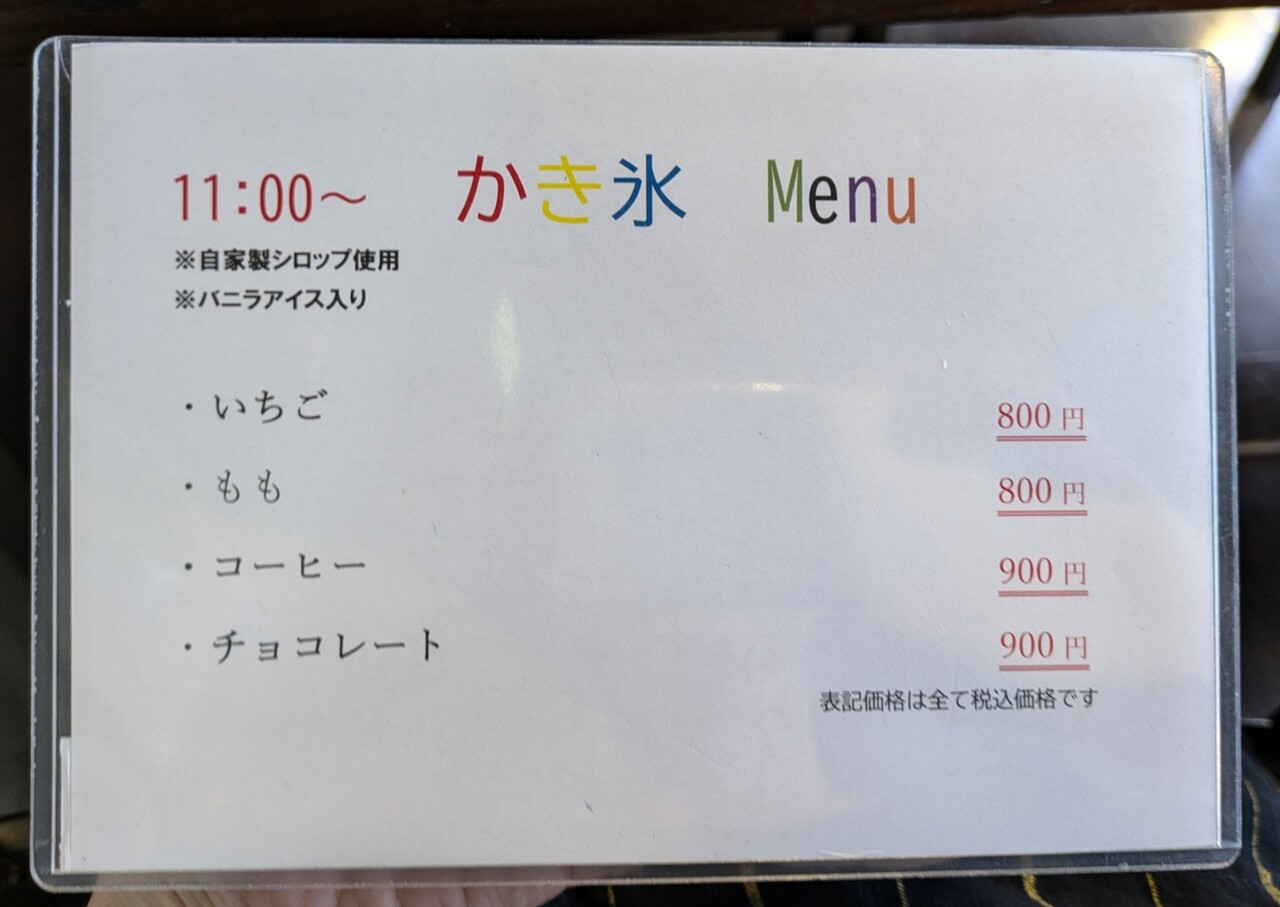 11:00～ かき氷 Menu
※自家製シロップ使用
※バニラアイス入り
・いちご 800 円
・もも 800 円
・コーヒー 900 円
・チョコレート 900 円
表記価格は全て税込価格です